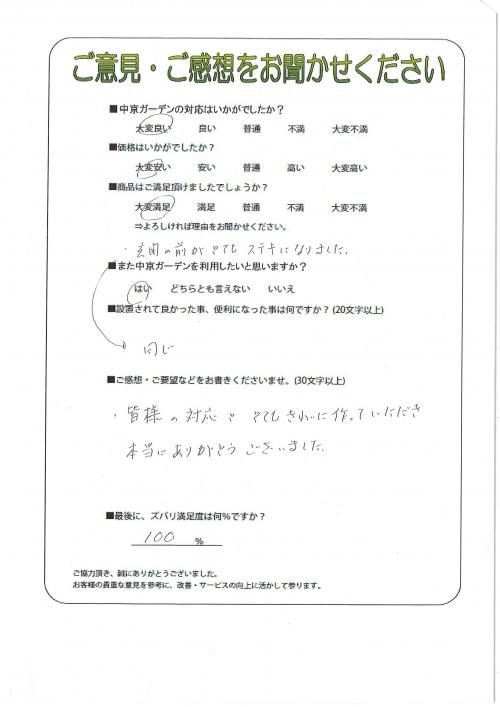 ご意見・ご感想をお聞かせください
■中京ガーデンの対応はいかがでしたか？
大変良い 良い 普通 不満 大変不満
■価格はいかがでしたか？
大変安い 安い 普通 高い 大変高い
■商品はご満足頂けましたでしょうか？
大変満足 満足 普通 不満 大変不満
⇒よろしければ理由をお聞かせください。
・玄関の前がとてもステキになりました。
■また中京ガーデンを利用したいと思いますか？
はい どちらとも言えない いいえ
■設置されて良かった事、便利になった事は何ですか？(20文字以上)
同じ
■ご感想・ご要望などをお書きくださいませ。(30文字以上)
・皆様の対応と とてもきれいに作っていただき
本当にありがとうございました。
■最後に、ズバリ満足度は何％ですか？
100 %
ご協力頂き、誠にありがとうございました。
お客様の貴重な意見を参考に、改善・サービスの向上に活かして参ります。